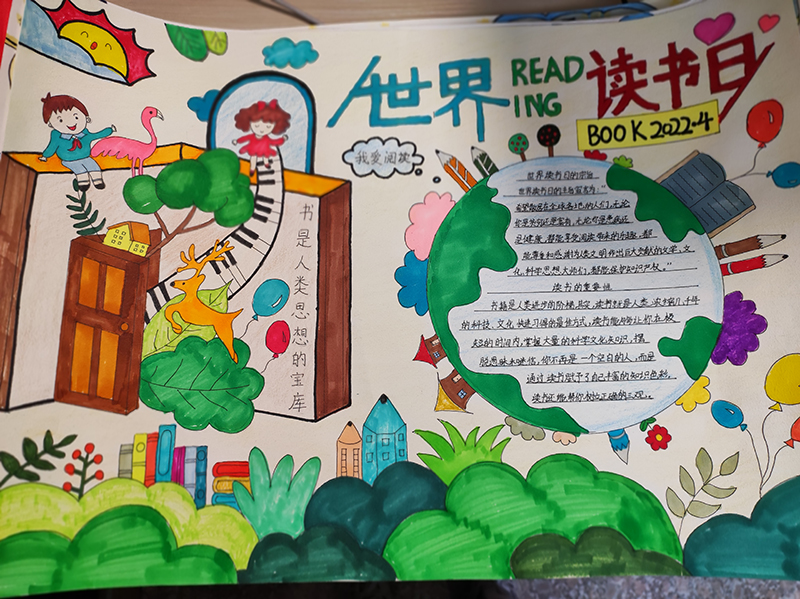 世界
READ
ING
读书日
BOOK 2022.4
我爱阅读
书是人类思想的宝库
世界读书日的宗旨
世界读书日的主旨宣言为:“
希望散居在全球各地的人们,无论
你是贫穷还是富有,无论你是患病还
是健康,都能享受阅读带来的乐趣,都
能尊重和感谢为人类文明作出巨大贡献的文学、文
化、科学思想大师们,都能保护知识产权。”
读书的重要性
书籍是人类进步的阶梯,
的科技、文化
短的时间内,掌握大量的科学文化知识,摆
脱愚昧和迷信,你不再是一个空白的人,而是
通过读书赋予了自己丰富的知识色彩。
读书还能帮你树立正确的三观。